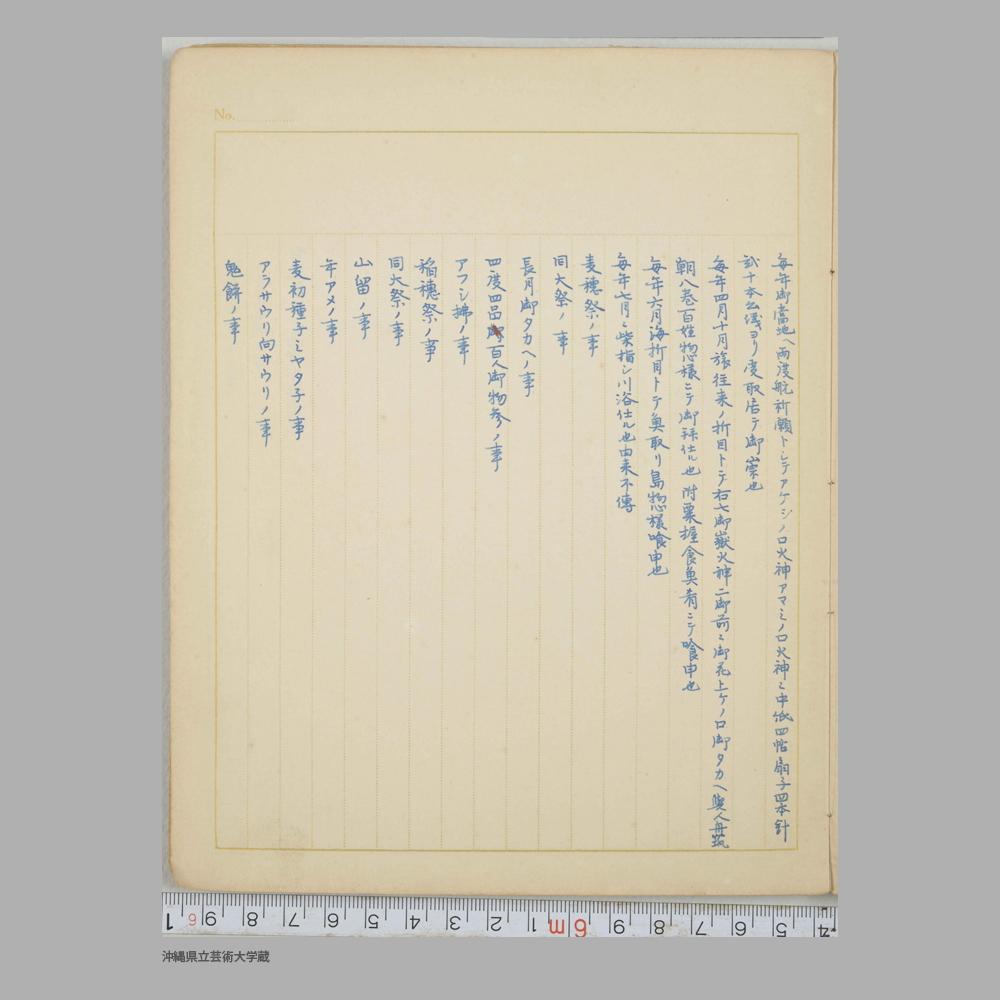 No.
毎年御當地ヘ両度航祈願トシテアケシノロ火神アマミノロ火神ニ中紙四帖扇子四本針
弐十本公儀ヨリ受取居テ御崇也
毎年四月十月旅往来ノ折目トテ右七御嶽火神二御前ニ御花上ケノロ御タカヘ與人舟筑
朝八巻百姓惣様ニテ御拝仕ル也 附粟握食魚肴ニテ喰申也
毎年六月海折目トテ魚取リ島惣様喰申也
毎年七月ニ柴指シ川浴仕ル也由来不傳
麦穂祭ノ事
同大祭ノ事
長月御タカヘノ事
四度四品百人御物参ノ事
アフシ拂ノ事
稲穂祭ノ事
同大祭ノ事
山留ノ事
年アメノ事
麦初種子ミヤタ子ノ事
アラサウリ向サウリノ事
鬼餅ノ事
1 6 9 8 7 6 5 4 3 2 1 6m 9 8 7 6 5 4
沖縄県立芸術大学蔵